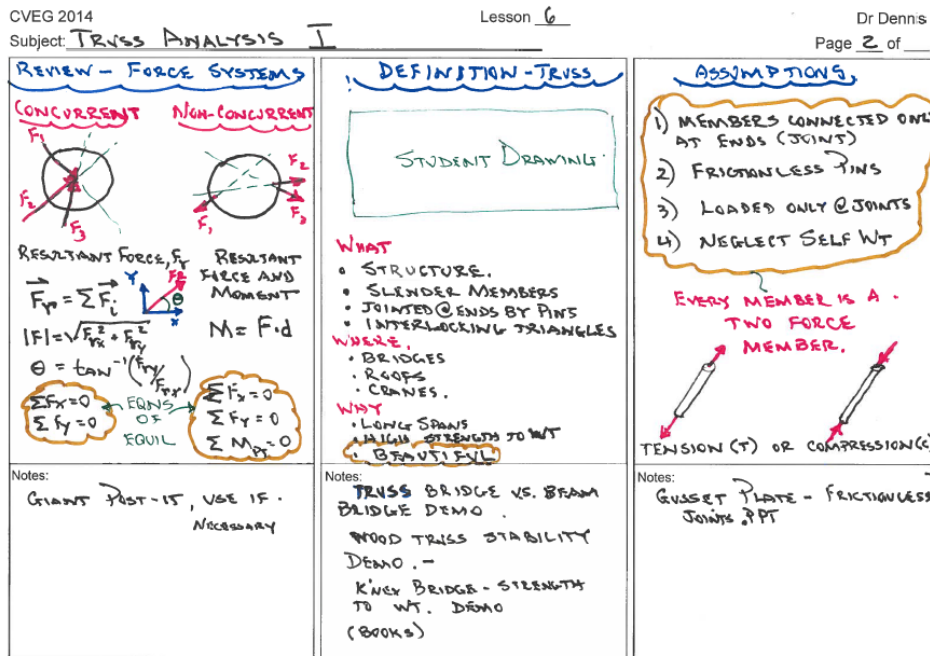 CVEG 2014
Lesson 6
Dr Dennis
Subject: TRUSS ANALYSIS I
Page 2 of
REVIEW - FORCE SYSTEMS
CONCURRENT
NON-CONCURRENT
F1
F2
F3
F1
F2
F3
RESULTANT FORCE, Fr
Fr = ΣFi
|F| = √(Frx² + Fry²)
θ = tan⁻¹(Fry/Frx)
Y
FR
θ
X
RESULTANT
FORCE AND
MOMENT
M = F·d
ΣFx=0
ΣFy=0
EQNS
OF
EQUIL
ΣFx=0
ΣFy=0
ΣMPT.=0
Notes:
GIANT POST-IT, USE IF
NECESSARY
DEFINITION - TRUSS
STUDENT DRAWING
WHAT
• STRUCTURE.
• SLENDER MEMBERS
• JOINTED @ ENDS BY PINS
• INTERLOCKING TRIANGLES
WHERE.
• BRIDGES
• ROOFS
• CRANES.
WHY
• LONG SPANS
• HIGH STRENGTH TO WT
• BEAUTIFUL
Notes:
TRUSS BRIDGE VS. BEAM
BRIDGE DEMO.
WOOD TRUSS STABILITY
DEMO. -
K'NEX BRIDGE - STRENGTH
TO WT. DEMO
(BOOKS)
ASSUMPTIONS,
1) MEMBERS CONNECTED ONLY
AT ENDS (JOINT)
2) FRICTIONLESS PINS
3) LOADED ONLY @ JOINTS
4) NEGLECT SELF WT
EVERY MEMBER IS A
TWO FORCE
MEMBER.
TENSION (T) OR COMPRESSION (C)
Notes:
GUSSET PLATE - FRICTIONLESS
JOINTS .PPT